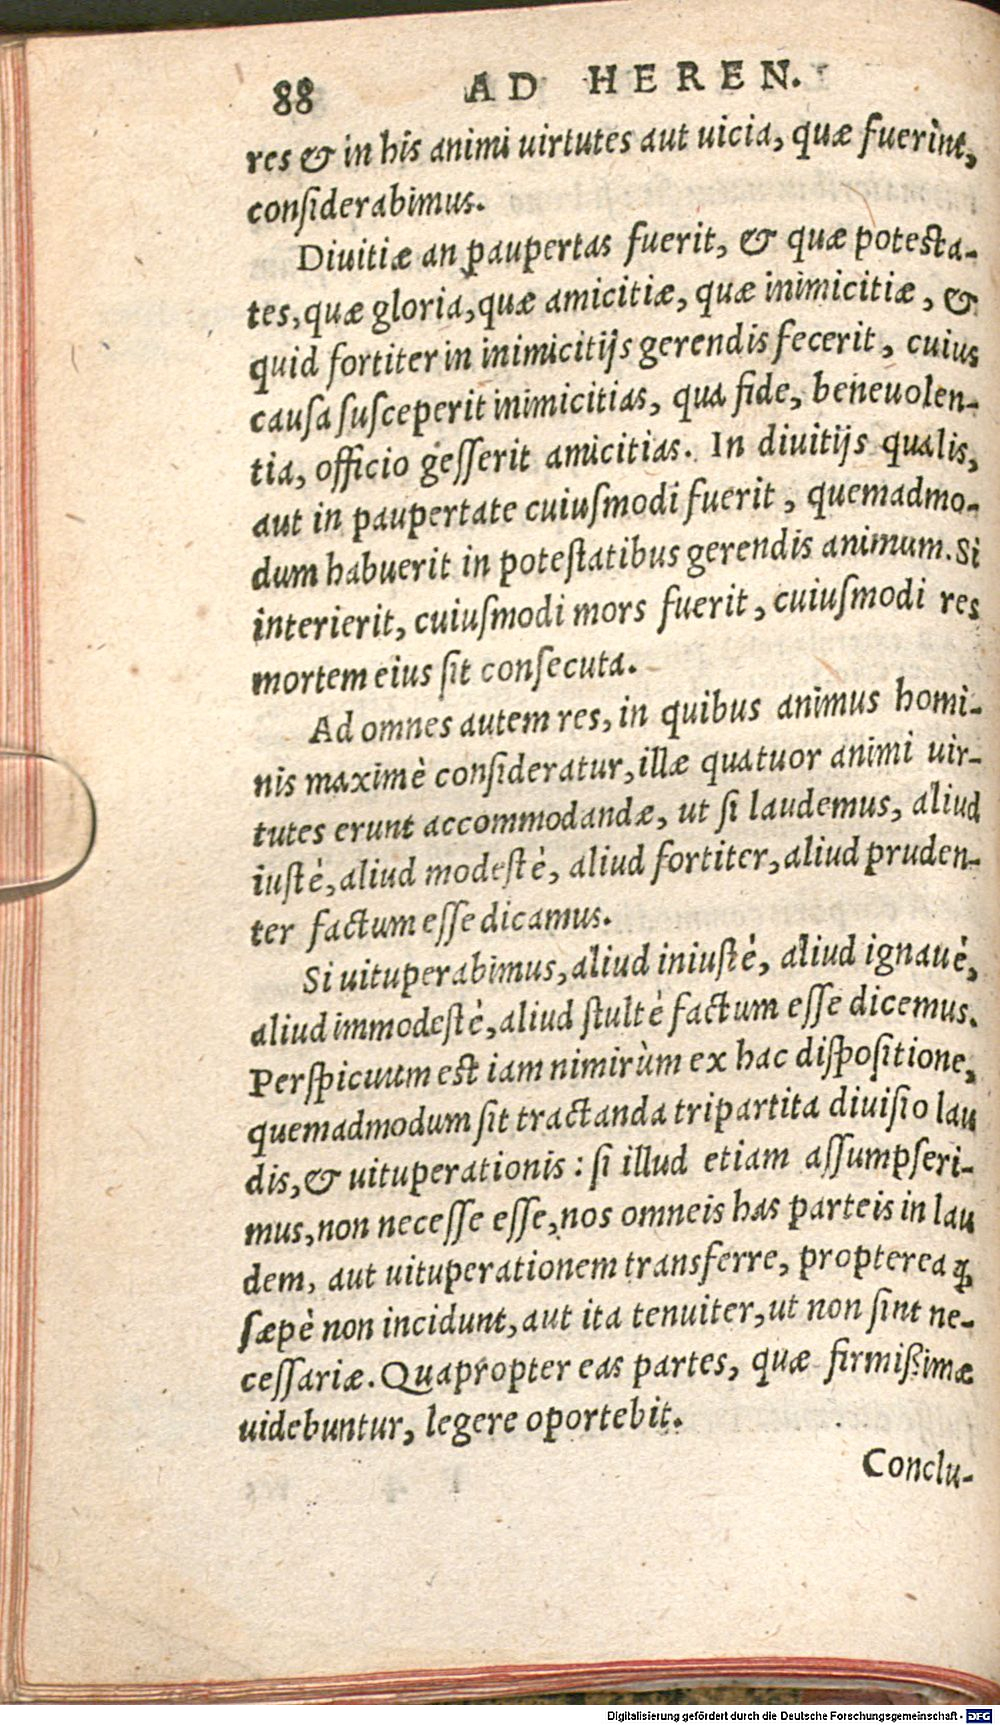 88 AD HEREN.
res & in his animi uirtutes aut uicia, quæ fuerint,
considerabimus.
Diuitiæ an paupertas fuerit, & quæ potesta-
tes, quæ gloria, quæ amicitiæ, quæ inimicitiæ, &
quid fortiter in inimicitijs gerendis fecerit, cuius
causa susceperit inimicitias, qua fide, beneuolen-
tia, officio gesserit amicitias. In diuitijs qualis,
aut in paupertate cuiusmodi fuerit, quemadmo-
dum habuerit in potestatibus gerendis animum. Si
interierit, cuiusmodi mors fuerit, cuiusmodi res
mortem eius sit consecuta.
Ad omnes autem res, in quibus animus homi-
nis maximè consideratur, illæ quatuor animi uir-
tutes erunt accommodandæ, ut si laudemus, aliud
iustè, aliud modestè, aliud fortiter, aliud pruden-
ter factum esse dicamus.
Si uituperabimus, aliud iniustè, aliud ignauè,
aliud immodestè, aliud stultè factum esse dicemus.
Perspicuum est iam nimirùm ex hac dispositione,
quemadmodum sit tractanda tripartita diuisio lau
dis, & uituperationis: si illud etiam assumpseri-
mus, non necesse esse, nos omneis has parteis in lau
dem, aut uituperationem transferre, propterea ꝙ
sæpè non incidunt, aut ita tenuiter, ut non sint ne-
cessariæ. Quapropter eas partes, quæ firmißimæ
uidebuntur, legere oportebit.
Conclu-
Digitalisierung gefördert durch die Deutsche Forschungsgemeinschaft - DFG